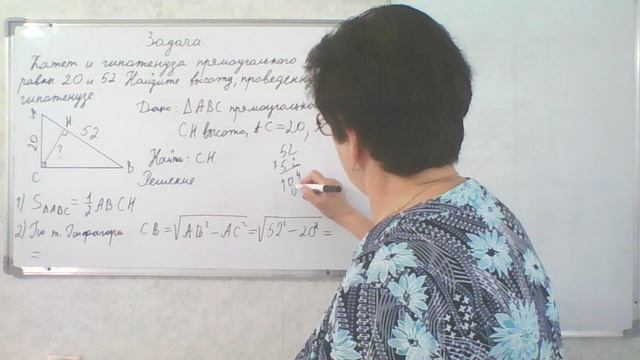 Задача
Катет и гипотенуза прямоугольного
равны 20 и 52 Найдите высоту, проведенн
гипотенузе
Дано: △ABC прямоугольн
CH высота, AC=20,
A
H
20
52
?
C
B
Найти: CH.
Решение
52
×52
104
1) S△ABC = 1/2 AB·CH
2) По т. Пифагора CB = √AB² − AC² = √52² − 20² =
=